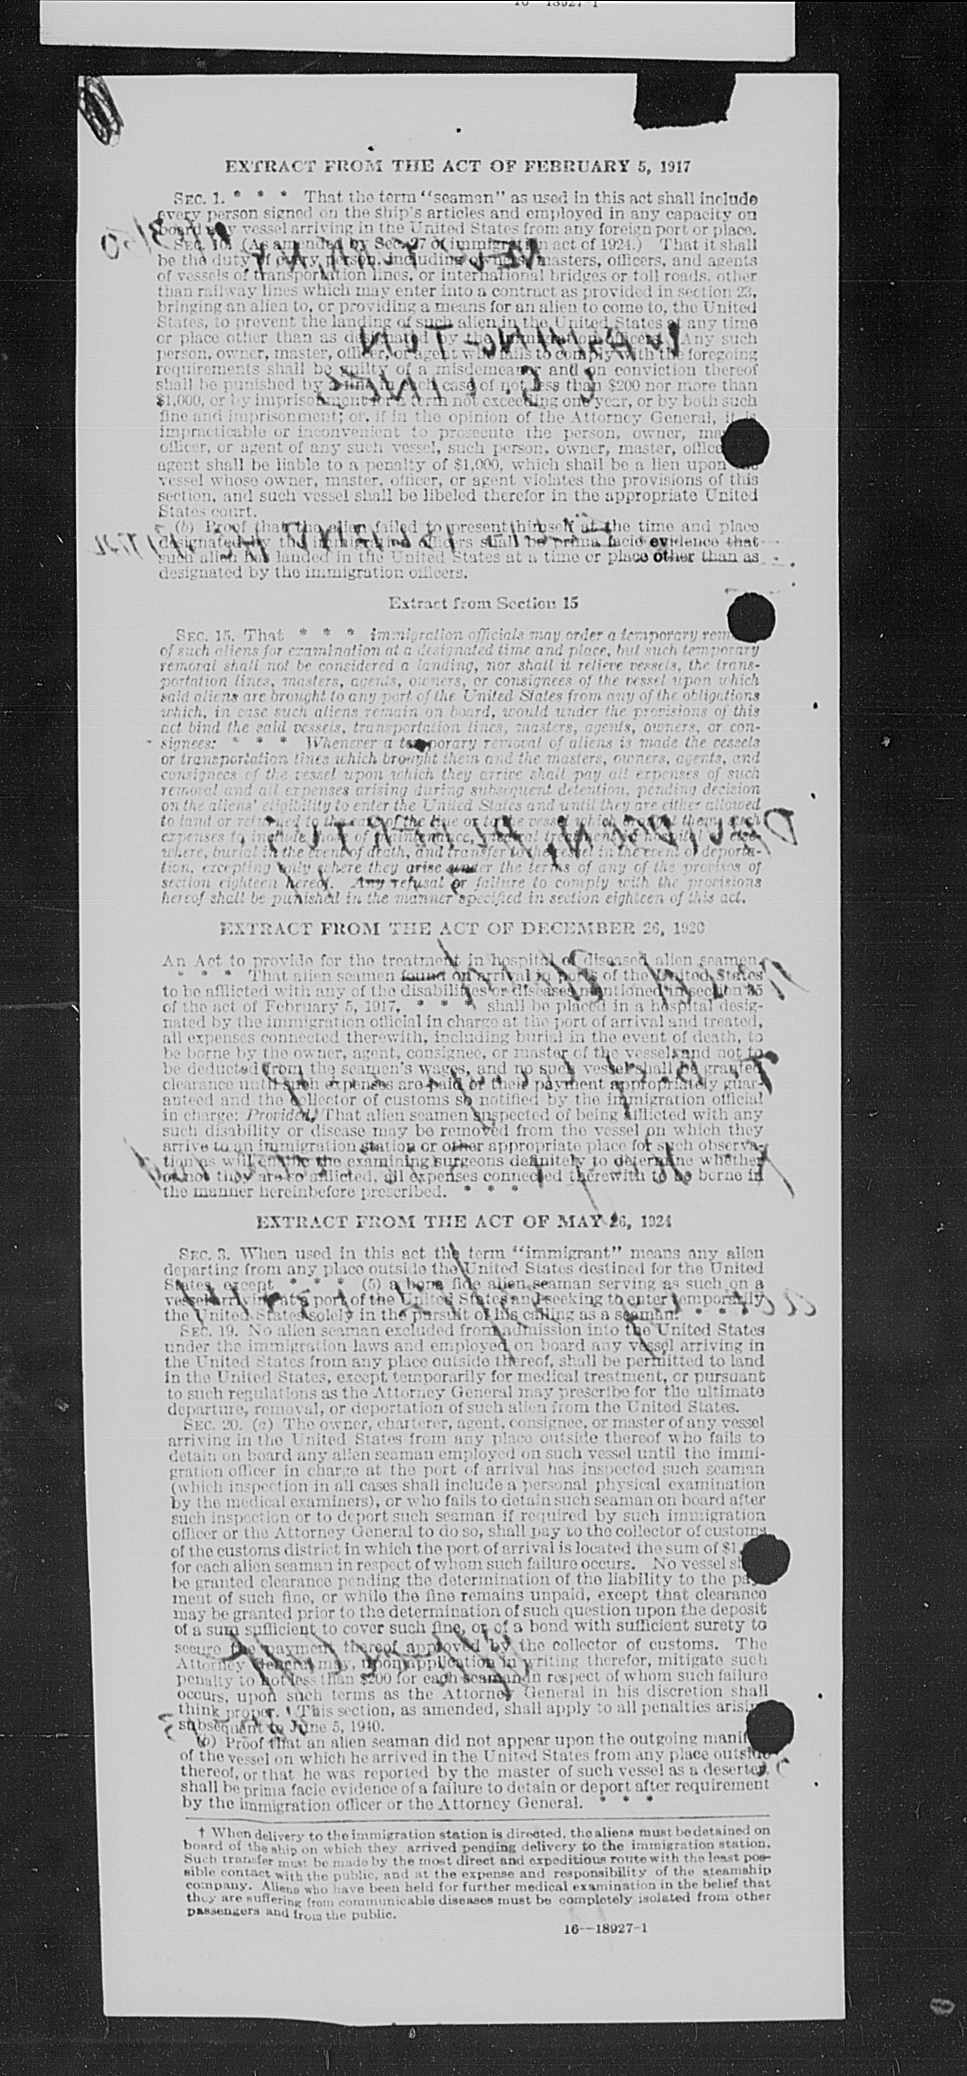 16—18927-1
EXTRACT FROM THE ACT OF FEBRUARY 5, 1917
SEC. 1. * * * That the term "seaman" as used in this act shall include
every person signed on the ship's articles and employed in any capacity on
board any vessel arriving in the United States from any foreign port or place.
SEC. 10. (As amended by Sec. 27 of immigration act of 1924.) That it shall
be the duty of every person, including owners, masters, officers, and agents
of vessels of transportation lines, or international bridges or toll roads, other
than railway lines which may enter into a contract as provided in section 23,
bringing an alien to, or providing a means for an alien to come to, the United
States, to prevent the landing of such alien in the United States at any time
or place other than as designated by the immigration officers. Any such
person, owner, master, officer, or agent who fails to comply with the foregoing
requirements shall be guilty of a misdemeanor and on conviction thereof
shall be punished by a fine in each case of not less than $200 nor more than
$1,000, or by imprisonment for a term not exceeding one year, or by both such
fine and imprisonment; or, if in the opinion of the Attorney General, it is
impracticable or inconvenient to prosecute the person, owner, ma
officer, or agent of any such vessel, such person, owner, master, office
agent shall be liable to a penalty of $1,000, which shall be a lien upon the
vessel whose owner, master, officer, or agent violates the provisions of this
section, and such vessel shall be libeled therefor in the appropriate United
States court.
(b) Proof that the alien failed to present himself at the time and place
designated by the immigration officers shall be prima facie evidence that
such alien has landed in the United States at a time or place other than as
designated by the immigration officers.
Extract from Section 15
SEC. 15. That * * * immigration officials may order a temporary rem
of such aliens for examination at a designated time and place, but such temporary
removal shall not be considered a landing, nor shall it relieve vessels, the trans-
portation lines, masters, agents, owners, or consignees of the vessel upon which
said aliens are brought to any port of the United States from any of the obligations
which, in case such aliens remain on board, would under the provisions of this
act bind the said vessels, transportation lines, masters, agents, owners, or con-
signees: * * * Whenever a temporary removal of aliens is made the vessels
or transportation lines which brought them and the masters, owners, agents, and
consignees of the vessel upon which they arrive shall pay all expenses of such
removal and all expenses arising during subsequent detention, pending decision
on the aliens' eligibility to enter the United States and until they are either allowed
to land or returned to the care of the line or to the vessel which brought them, such
expenses to include those of maintenance, medical treatment in hospital or else-
where, burial in the event of death, and transfer to the vessel in the event of deporta-
tion, excepting only where they arise under the terms of any of the provisos of
section eighteen hereof. Any refusal or failure to comply with the provisions
hereof shall be punished in the manner specified in section eighteen of this act.
EXTRACT FROM THE ACT OF DECEMBER 26, 1920
An Act to provide for the treatment in hospital of diseased alien seamen.
* * * That alien seamen found on arrival in ports of the United States
to be afflicted with any of the disabilities or diseases mentioned in section 35
of the act of February 5, 1917, * * * shall be placed in a hospital desig-
nated by the immigration official in charge at the port of arrival and treated,
all expenses connected therewith, including burial in the event of death, to
be borne by the owner, agent, consignee, or master of the vessel, and not to
be deducted from the seamen's wages, and no such vessel shall be granted
clearance until such expenses are paid or their payment appropriately guar-
anteed and the collector of customs so notified by the immigration official
in charge: Provided, That alien seamen suspected of being afflicted with any
such disability or disease may be removed from the vessel on which they
arrive to an immigration station or other appropriate place for such observa-
tion as will enable the examining surgeons definitely to determine whether
or not they are so afflicted, all expenses connected therewith to be borne in
the manner hereinbefore prescribed. * * *
EXTRACT FROM THE ACT OF MAY 26, 1924
SEC. 3. When used in this act the term "immigrant" means any alien
departing from any place outside the United States destined for the United
States, except * * * (5) a bona fide alien seaman serving as such on a
vessel arriving at a port of the United States and seeking to enter temporarily
the United States solely in the pursuit of his calling as a seaman.
SEC. 19. No alien seaman excluded from admission into the United States
under the immigration laws and employed on board any vessel arriving in
the United States from any place outside thereof, shall be permitted to land
in the United States, except temporarily for medical treatment, or pursuant
to such regulations as the Attorney General may prescribe for the ultimate
departure, removal, or deportation of such alien from the United States.
SEC. 20. (a) The owner, charterer, agent, consignee, or master of any vessel
arriving in the United States from any place outside thereof who fails to
detain on board any alien seaman employed on such vessel until the immi-
gration officer in charge at the port of arrival has inspected such seaman
(which inspection in all cases shall include a personal physical examination
by the medical examiners), or who fails to detain such seaman on board after
such inspection or to deport such seaman if required by such immigration
officer or the Attorney General to do so, shall pay to the collector of customs
of the customs district in which the port of arrival is located the sum of $1,
for each alien seaman in respect of whom such failure occurs. No vessel sh
be granted clearance pending the determination of the liability to the pay
ment of such fine, or while the fine remains unpaid, except that clearance
may be granted prior to the determination of such question upon the deposit
of a sum sufficient to cover such fine, or of a bond with sufficient surety to
secure the payment thereof approved by the collector of customs. The
Attorney General may, upon application in writing therefor, mitigate such
penalty to not less than $200 for each seaman in respect of whom such failure
occurs, upon such terms as the Attorney General in his discretion shall
think proper. This section, as amended, shall apply to all penalties arising
subsequent to June 5, 1940.
(b) Proof that an alien seaman did not appear upon the outgoing manif
of the vessel on which he arrived in the United States from any place outside
thereof, or that he was reported by the master of such vessel as a deserter,
shall be prima facie evidence of a failure to detain or deport after requirement
by the immigration officer or the Attorney General. * * *
† When delivery to the immigration station is directed, the aliens must be detained on
board of the ship on which they arrived pending delivery to the immigration station.
Such transfer must be made by the most direct and expeditious route with the least pos-
sible contact with the public, and at the expense and responsibility of the steamship
company. Aliens who have been held for further medical examination in the belief that
they are suffering from communicable diseases must be completely isolated from other
passengers and from the public.
16—18927-1